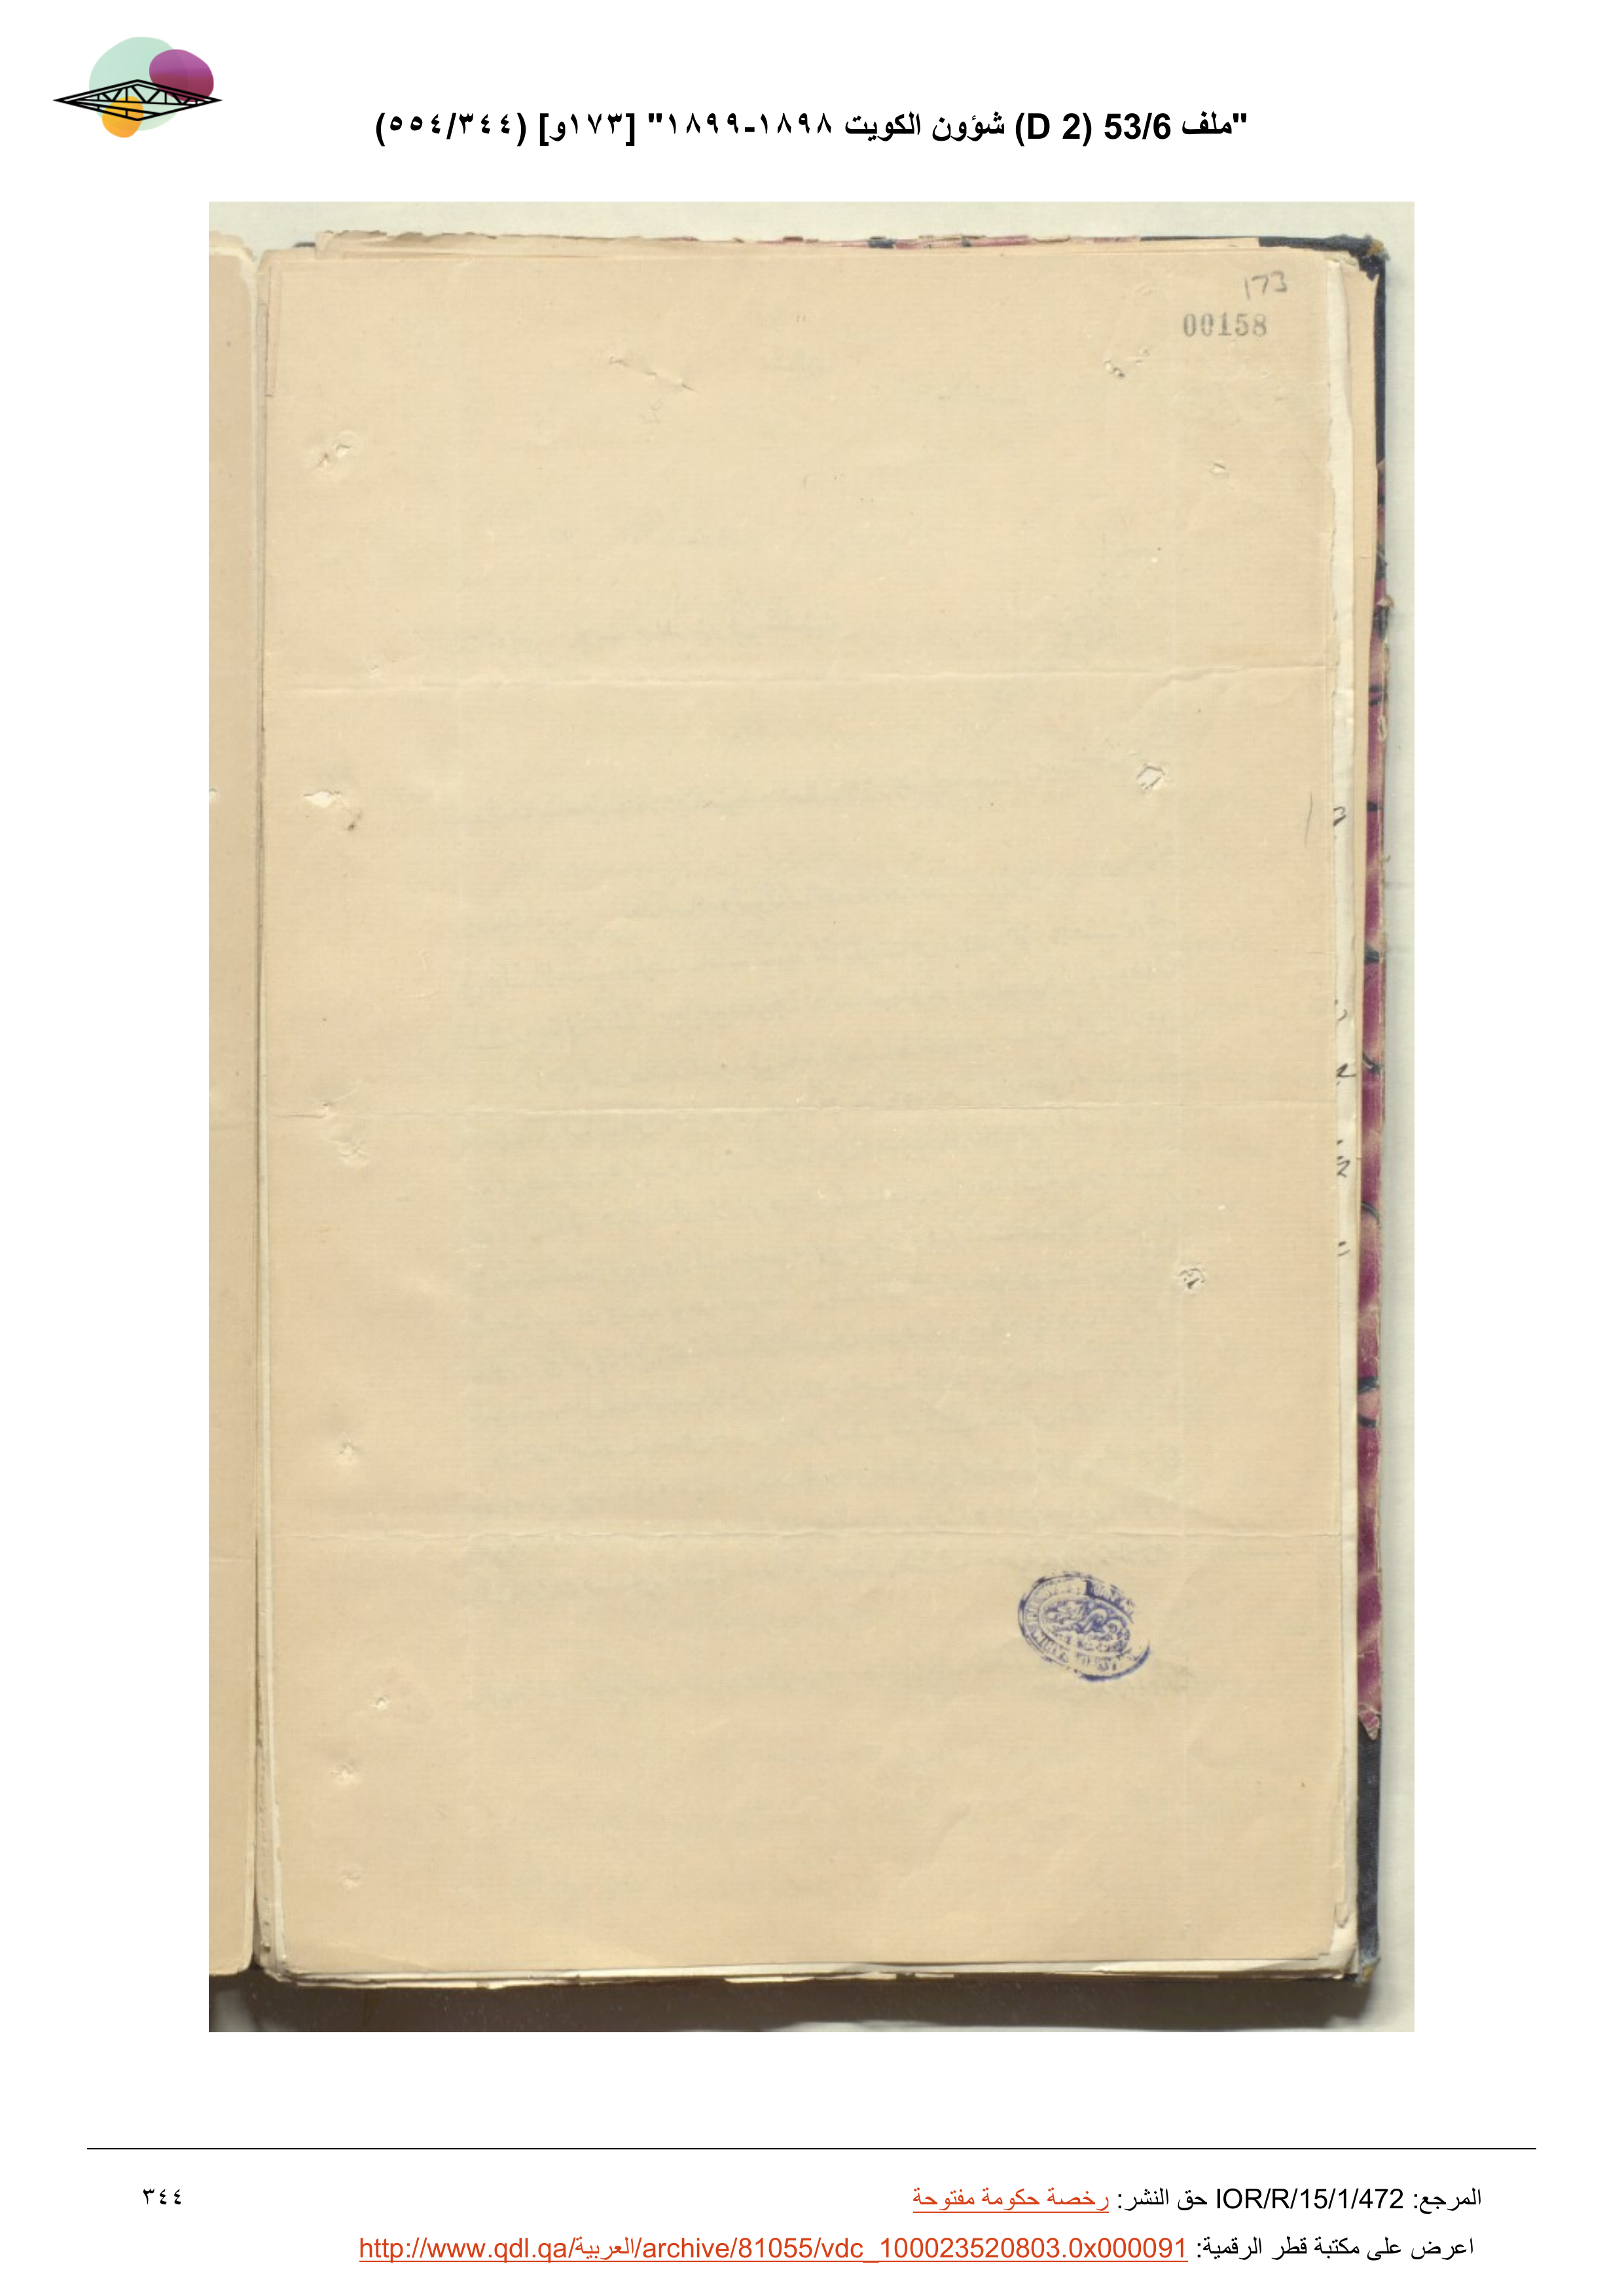 "ملف 53/6 (D 2) شؤون الكويت ١٨٩٨-١٨٩٩" [١٧٣و] (٥٥٤/٣٤٤)
173
00158
المرجع: IOR/R/15/1/472 حق النشر: رخصة حكومة مفتوحة
٣٤٤
اعرض على مكتبة قطر الرقمية: http://www.qdl.qa/العربية/archive/81055/vdc_100023520803.0x000091